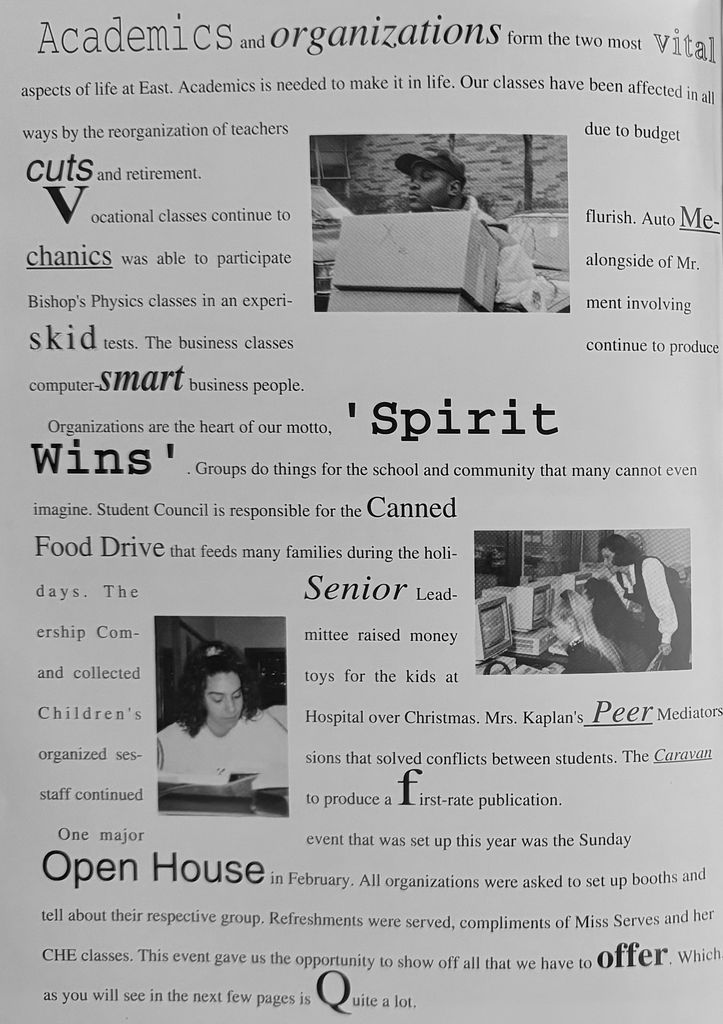 Academics and organizations form the two most vital
aspects of life at East. Academics is needed to make it in life. Our classes have been affected in all
ways by the reorganization of teachers due to budget
cuts and retirement.
Vocational classes continue to flurish. Auto Me-
chanics was able to participate alongside of Mr.
Bishop's Physics classes in an experi- ment involving
skid tests. The business classes continue to produce
computer-smart business people.
Organizations are the heart of our motto, 'Spirit
Wins'. Groups do things for the school and community that many cannot even
imagine. Student Council is responsible for the Canned
Food Drive that feeds many families during the holi-
days. The Senior Lead-
ership Com- mittee raised money
and collected toys for the kids at
Children's Hospital over Christmas. Mrs. Kaplan's Peer Mediators
organized ses- sions that solved conflicts between students. The Caravan
staff continued to produce a first-rate publication.
One major event that was set up this year was the Sunday
Open House in February. All organizations were asked to set up booths and
tell about their respective group. Refreshments were served, compliments of Miss Serves and her
CHE classes. This event gave us the opportunity to show off all that we have to offer. Which
as you will see in the next few pages is Quite a lot.